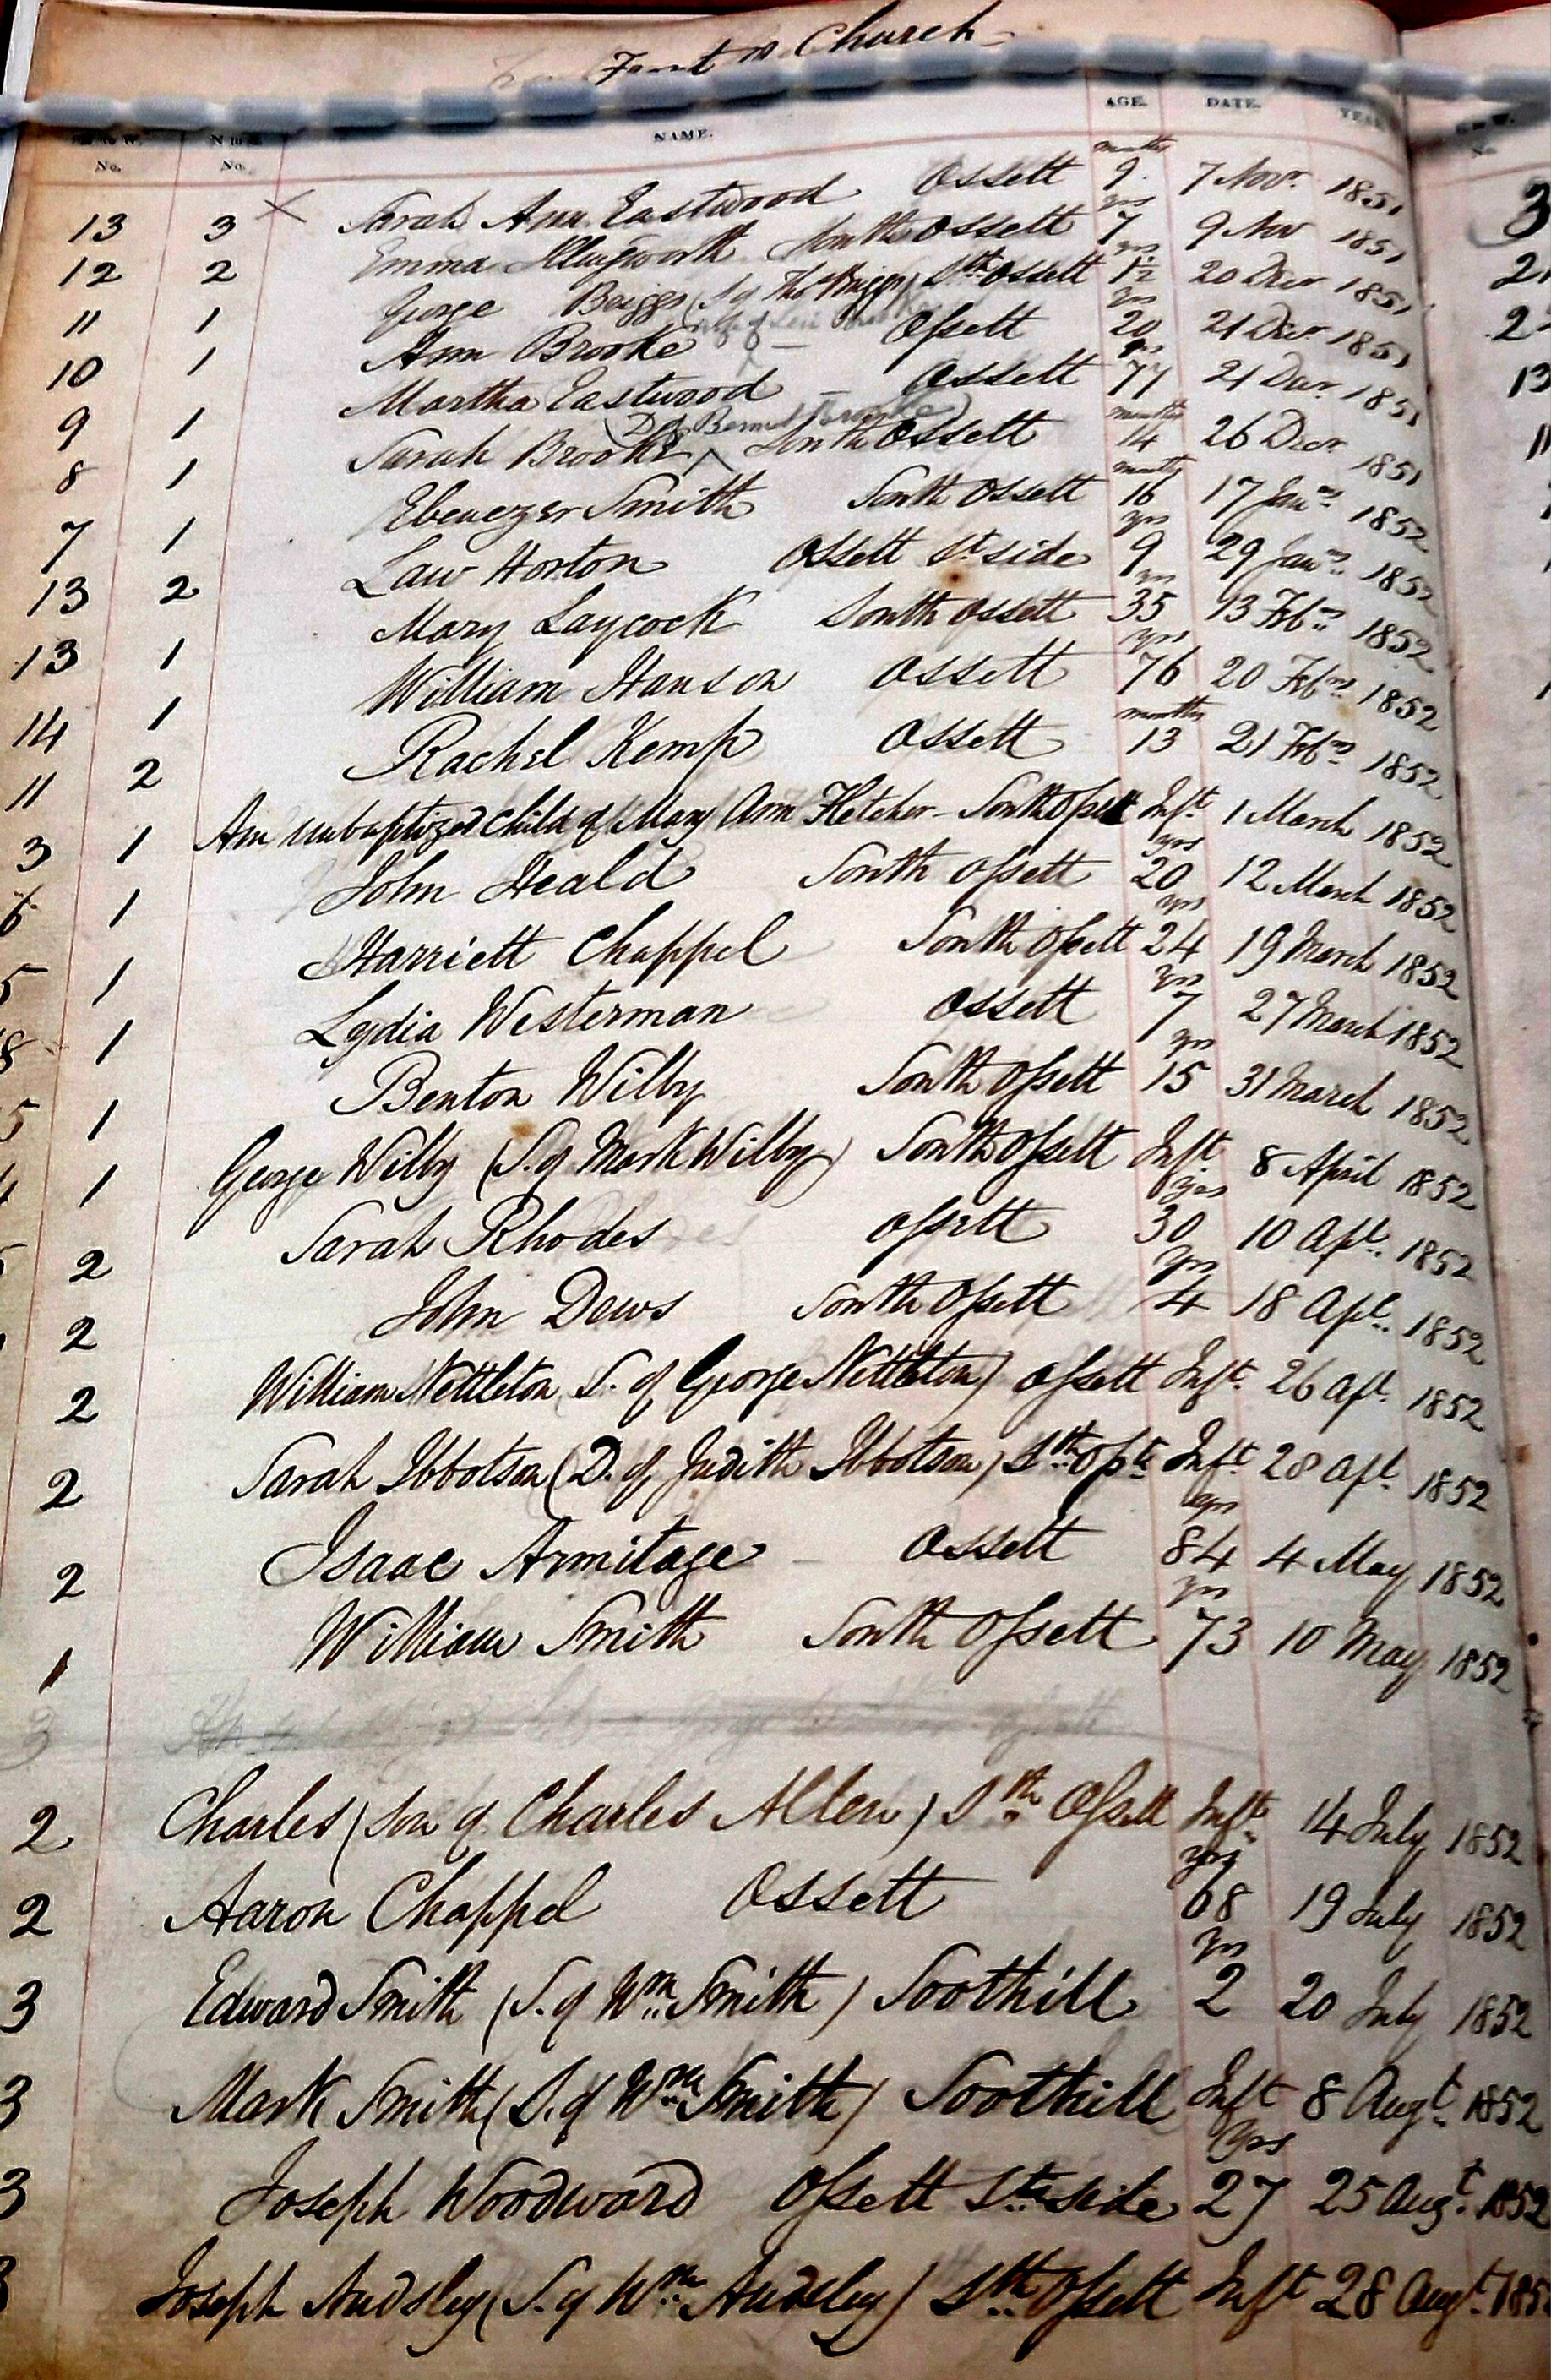 Front n Church
No. No. NAME. AGE. DATE. YEAR
13 3 × Sarah Ann Eastwood Ossett months 9 7 Novr. 1851
12 2 Emma Illingworth South Ossett yrs 7 9 Nov 1851
11 1 George Briggs (S of Thos Briggs) Sth Ossett yrs 12 20 Decr 1851
wife of Levi Brooke
10 1 Ann Brooke Ossett yrs 20 21 Decr 1851
9 1 Martha Eastwood – Ossett yrs 77 21 Decr 1851
(D of Brooke)
8 1 Sarah Brooke South Ossett months 14 26 Decr 1851
7 1 Ebenezer Smith South Ossett months 16 17 Jany 1852
13 2 Law Horton Ossett St side yrs 9 29 Jany 1852
13 1 Mary Laycock South Ossett yrs 35 13 Feby 1852
14 1 William Hanson Ossett yrs 76 20 Feby 1852
11 2 Rachel Kemp Ossett months 13 21 Feby 1852
3 1 An unbaptized child of Mary Ann Fletcher – South Ossett Inft 1 March 1852
6 1 John Heald South Ossett yrs 20 12 March 1852
5 1 Harriett Chappel South Ossett yrs 24 19 March 1852
8 1 Lydia Westerman Ossett yrs 7 27 March 1852
5 1 Benton Wilby South Ossett yrs 15 31 March 1852
4 1 George Wilby (S. of Mark Wilby) South Ossett Inft 8 April 1852
5 2 Sarah Rhodes Ossett yrs 30 10 Apl. 1852
2 John Dews South Ossett yrs 4 18 Apl. 1852
2 William Nettleton S. of George Nettleton) Ossett Inft. 26 Apl. 1852
2 Sarah Ibbotson (D. of Judith Ibbotson) Sth Osstt Inft. 28 Apl. 1852
2 Isaac Armitage – Ossett yrs 84 4 May 1852
1 William Smith South Ossett yrs 73 10 May 1852
2 Charles (son of Charles Allen) Sth Ossett Inft 14 July 1852
2 Aaron Chappel Ossett yrs 68 19 July 1852
3 Edward Smith (S. of Wm Smith) Soothill yrs 2 20 July 1852
3 Mark Smith (S. of Wm Smith) Soothill Inft 8 Augt. 1852
3 Joseph Woodward Ossett St side yrs 27 25 Augt. 1852
3 Joseph Audsley (S. of Wm Audsley) Sth Ossett Inft 28 Augt. 185